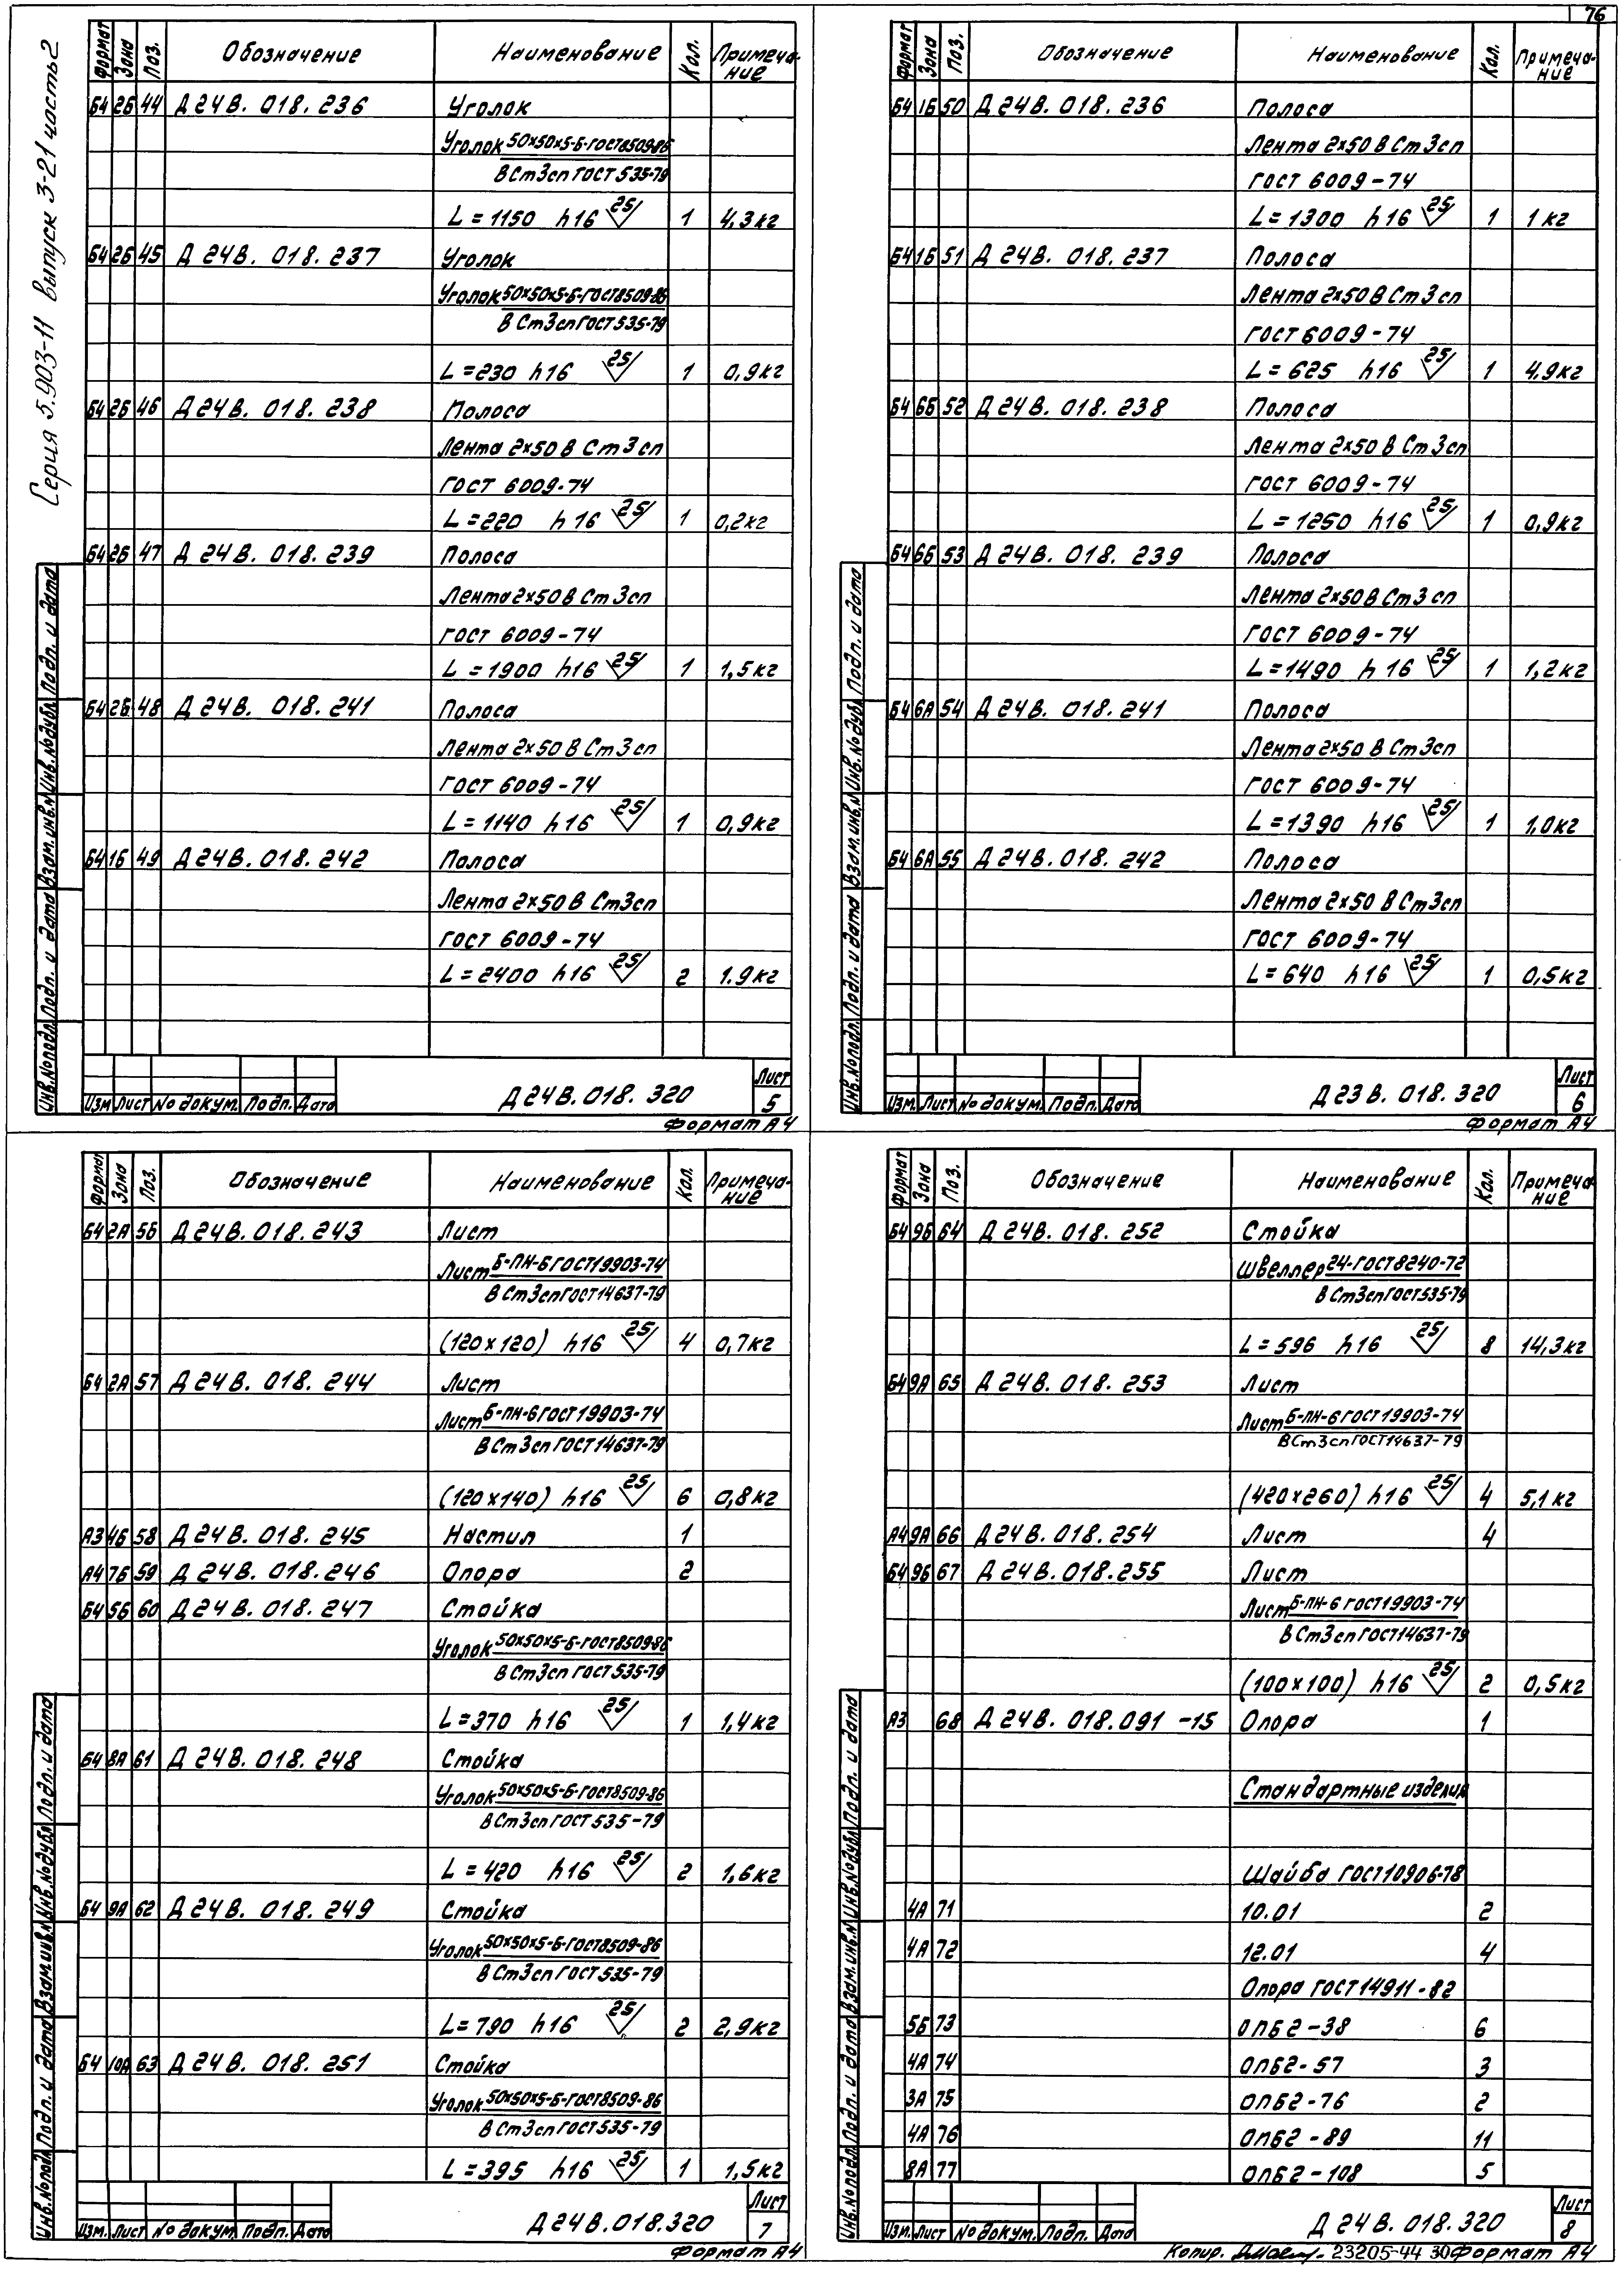 76
Серия 5.903-11 выпуск 3-21 часть 2
Формат Зона Поз. Обозначение Наименование Кол. Примеча-ние
Б4 2Б 44 Д 24 В. 018. 236 Уголок
Уголок 50х50х5-Б-ГОСТ8509-86
В Ст3сп ГОСТ 535-79
L = 1150 h16 25 1 4,3кг
Б4 2Б 45 Д 24В. 018. 237 Уголок
Уголок 50х50х5-Б-ГОСТ8509-86
В Ст3сп ГОСТ 535-79
L = 230 h16 25 1 0,9кг
Б4 2Б 46 Д 24В. 018. 238 Полоса
Лента 2х50 В Ст 3 сп
ГОСТ 6009-74
L = 220 h 16 25 1 0,2кг
Б4 2Б 47 Д 24 В. 018. 239 Полоса
Лента 2х50 В Ст 3 сп
ГОСТ 6009-74
L = 1900 h16 25 1 1,5кг
Б4 2Б 48 Д 24В. 018. 241 Полоса
Лента 2х50 В Ст 3 сп
ГОСТ 6009-74
L = 1140 h16 25 1 0,9кг
Б4 1Б 49 Д 24В. 018. 242 Полоса
Лента 2х50 В Ст3сп
ГОСТ 6009-74
L = 2400 h16 25 2 1.9кг
Инв.№подл. Подп. и дата Взам.инв.№ Инв.№дубл. Подп. и дата
Изм. Лист № докум. Подп. Дата
Д 24 В. 018. 320
Лист
5
Формат А4
Формат Зона Поз. Обозначение Наименование Кол. Примеча-ние
Б4 1Б 50 Д 24В. 018. 236 Полоса
Лента 2х50 В Ст 3 сп
ГОСТ 6009-74
L = 1300 h16 25 1 1 кг
Б4 1Б 51 Д 24В. 018. 237 Полоса
Лента 2х50 В Ст 3 сп
ГОСТ 6009-74
L = 625 h16 25 1 4.9кг
Б4 6Б 52 Д 24В. 018. 238 Полоса
Лента 2х50 В Ст 3сп
ГОСТ 6009-74
L = 1250 h16 25 1 0,9кг
Б4 6Б 53 Д 24В. 018. 239 Полоса
Лента 2х50 В Ст 3 сп
ГОСТ 6009-74
L = 1490 h 16 25 1 1,2кг
Б4 6А 54 Д 24В. 018. 241 Полоса
Лента 2х50 В Ст 3сп
ГОСТ 6009-74
L = 1390 h16 25 1 1,0кг
Б4 6А 55 Д 24В. 018. 242 Полоса
Лента 2х50 В Ст3сп
ГОСТ 6009-74
L = 640 h16 25 1 0,5кг
Инв.№подл. Подп. и дата Взам.инв.№ Инв.№дубл. Подп. и дата
Изм. Лист № докум. Подп. Дата
Д 23 В. 018. 320
Лист
6
Формат А4
Формат Зона Поз. Обозначение Наименование Кол. Примеча-ние
Б4 2А 56 Д 24В. 018. 243 Лист
Лист Б-ПН-6 ГОСТ19903-74
В Ст3сп ГОСТ14637-79
(120х120) h16 25 4 0,7кг
Б4 2А 57 Д 24 В. 018. 244 Лист
Лист Б-ПН-6 ГОСТ19903-74
В Ст 3сп ГОСТ14637-79
(120х140) h16 25 6 0,8кг
А3 4Б 58 Д 24В. 018. 245 Настил 1
А4 7Б 59 Д 24В. 018. 246 Опора 2
Б4 5Б 60 Д 24 В. 018. 247 Стойка
Уголок 50х50х5-Б-ГОСТ8509-86
В Ст3сп ГОСТ 535-79
L = 370 h16 25 1 1,4кг
Б4 8А 61 Д 24 В. 018. 248 Стойка
Уголок 50х50х5-Б-ГОСТ8509-86
В Ст3сп ГОСТ 535-79
L = 420 h16 25 2 1,6кг
Б4 9А 62 Д 24 В. 018. 249 Стойка
Уголок 50х50х5-Б-ГОСТ8509-86
В Ст3сп ГОСТ 535-79
L = 790 h16 25 2 2,9кг
Б4 10А 63 Д 24 В. 018. 251 Стойка
Уголок 50х50х5-Б-ГОСТ8509-86
В Ст3сп ГОСТ535-79
L = 395 h16 25 1 1,5кг
Инв.№подл. Подп. и дата Взам.инв.№ Инв.№дубл. Подп. и дата
Изм. Лист № докум. Подп. Дата
Д 24 В.018.320
Лист
7
Формат А4
Формат Зона Поз. Обозначение Наименование Кол. Примеча-ние
Б4 9Б 64 Д 24В. 018. 252 Стойка
Швеллер 24-ГОСТ8240-72
В Ст3сп ГОСТ535-79
L = 596 h16 25 8 14,3кг
Б4 9А 65 Д 24В. 018. 253 Лист
Лист Б-ПН-6 ГОСТ19903-74
В Ст3сп ГОСТ14637-79
(420х260) h16 25 4 5,1 кг
А4 9А 66 Д 24В. 018. 254 Лист 4
Б4 9Б 67 Д 24В. 018.255 Лист
Лист Б-ПН-6 ГОСТ19903-74
В Ст3сп ГОСТ14637-79
(100х100) h16 25 2 0,5кг
А3 68 Д 24В. 018.091 -15 Опора 1
Стандартные изделия
Шайба ГОСТ10906-78
4А 71 10.01 2
4А 72 12.01 4
Опора ГОСТ14911-82
5Б 73 ОПБ2-38 6
4А 74 ОПБ2-57 3
3А 75 ОПБ2-76 2
4А 76 ОПБ2-89 11
8А 77 ОПБ2-108 5
Инв.№подл. Подп. и дата Взам.инв.№ Инв.№дубл. Подп. и дата
Изм. Лист № докум. Подп. Дата
Д 24 В. 018. 320
Лист
8
Копир. 23205-44 30 Формат А4